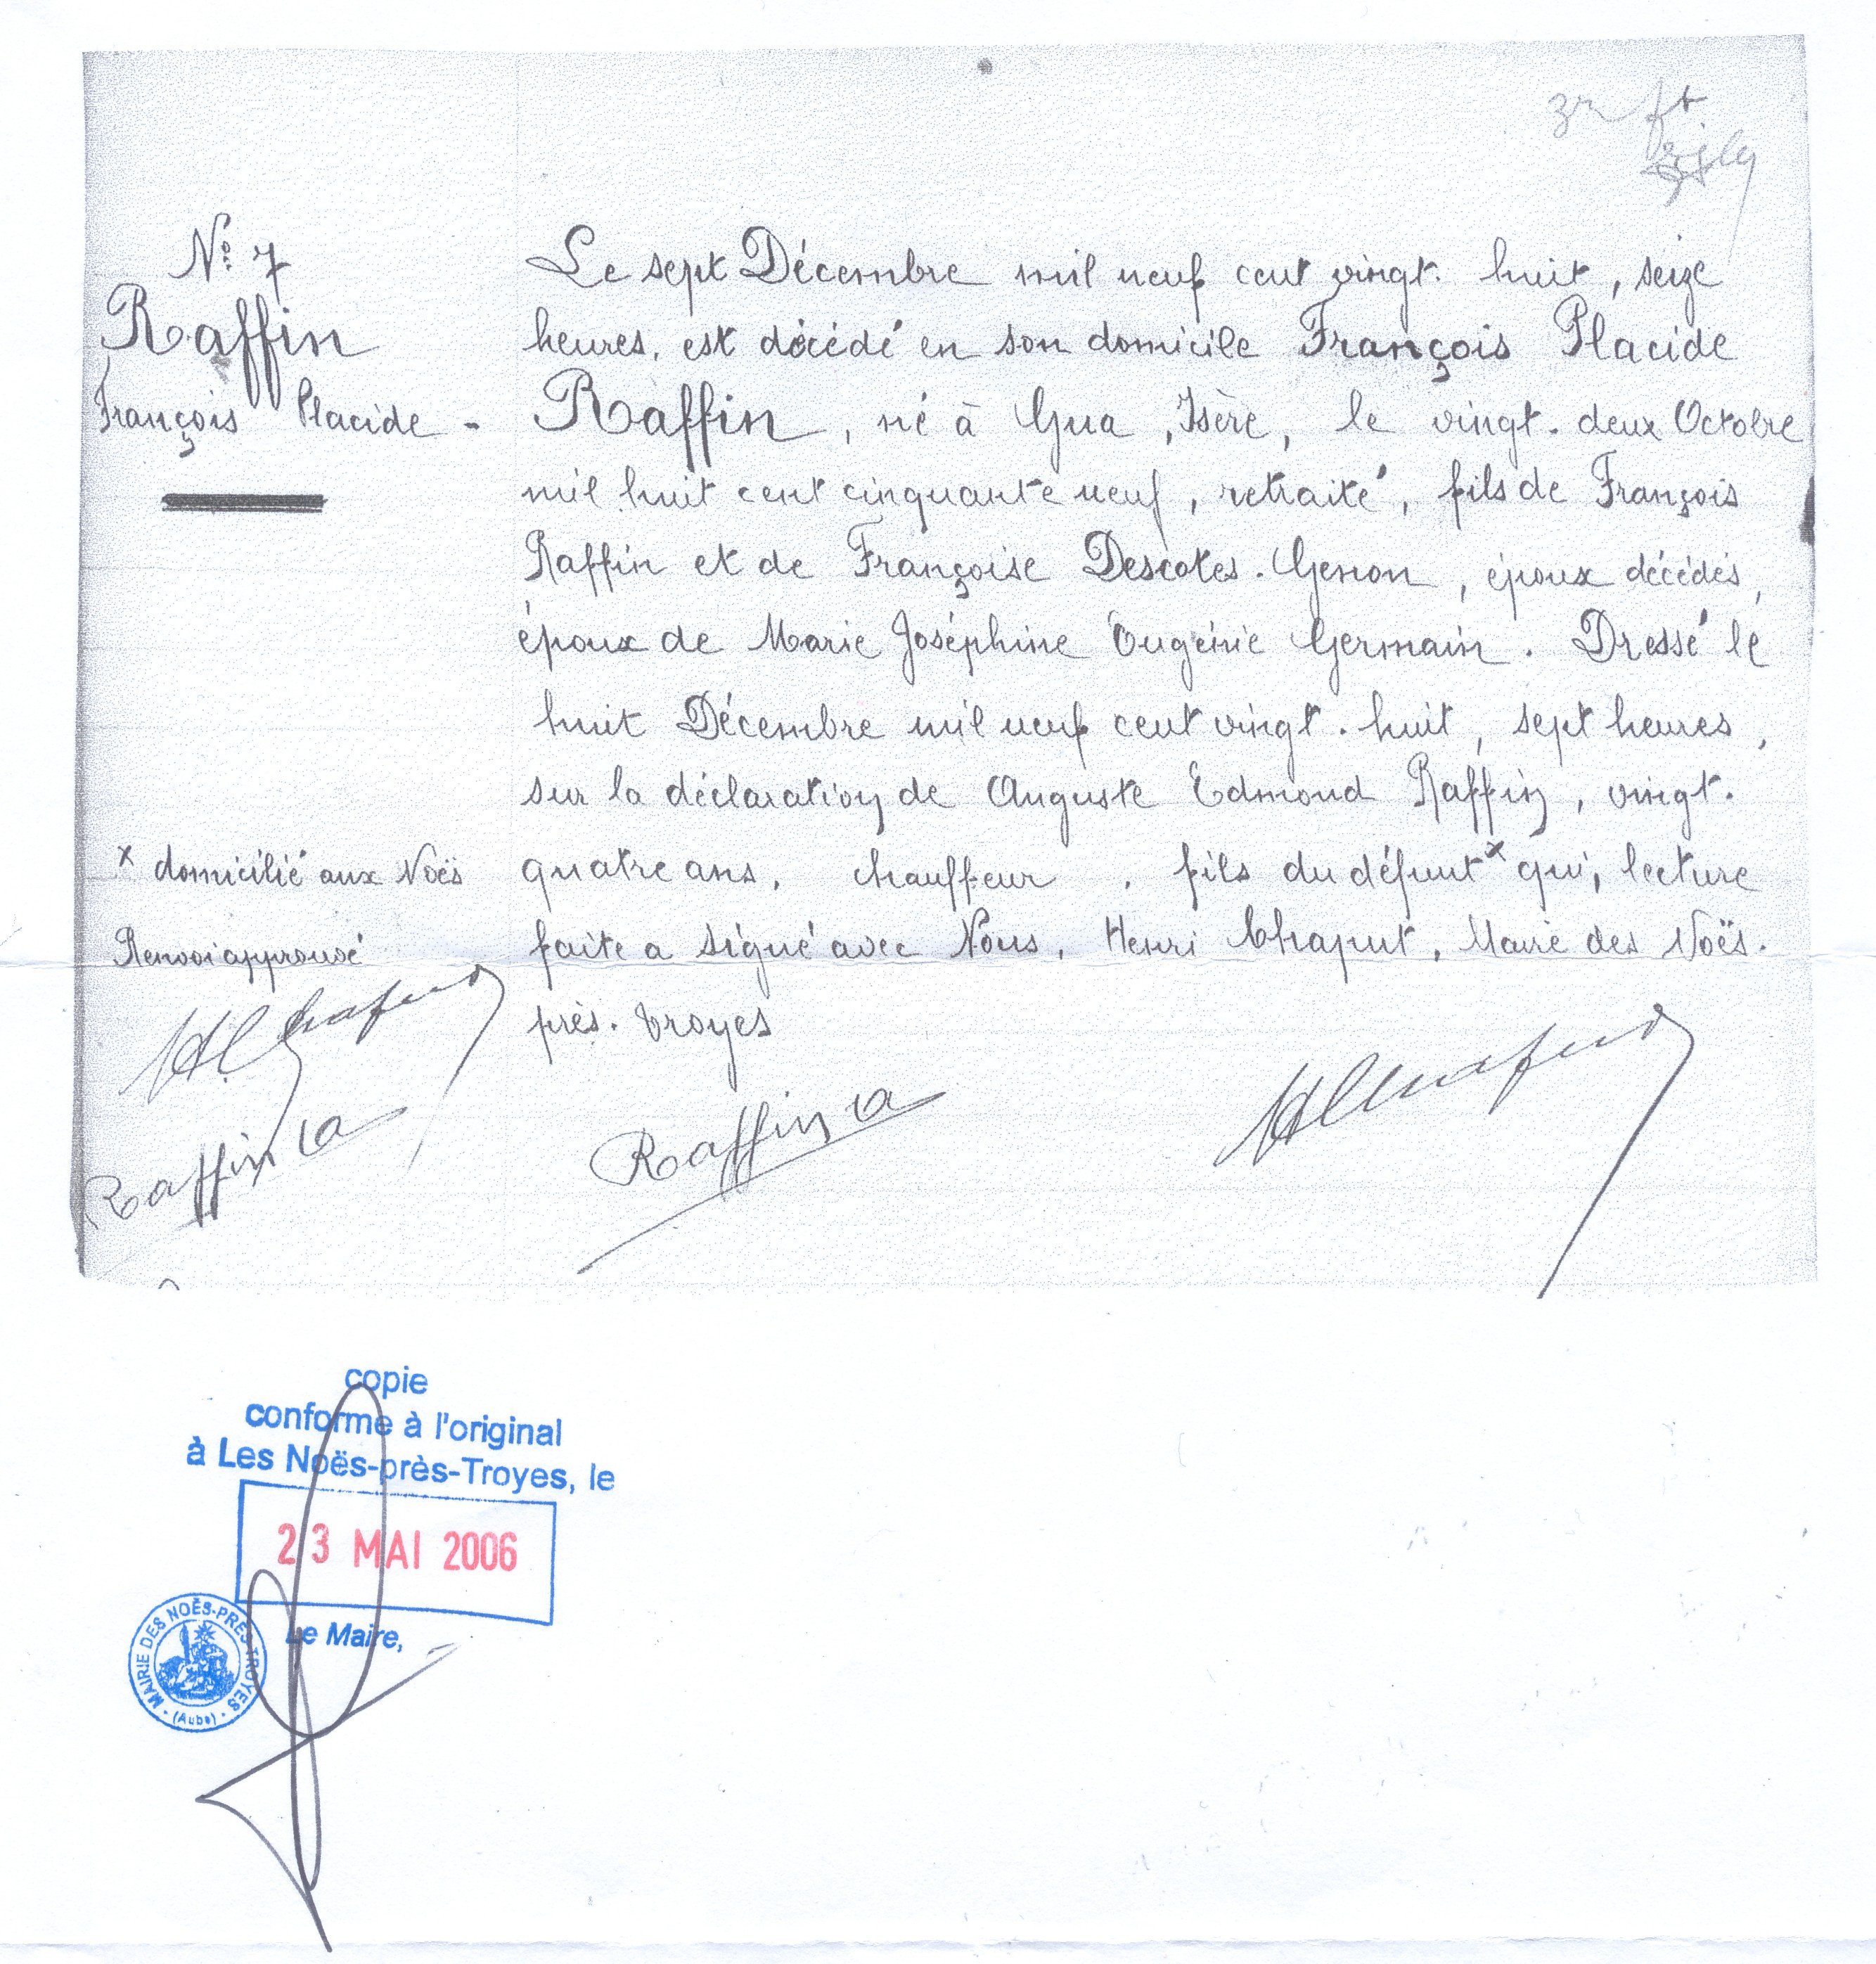 N° 7
Raffin
François Placide -
Le sept Décembre mil neuf cent vingt. huit, seize
heures, est décédé en son domicile François Placide
Raffin, né à Gua, Isère, le vingt. deux Octobre
mil huit cent cinquante neuf, retraité, fils de François
Raffin et de Françoise Descotes. Genon, époux décédés,
époux de Marie Joséphine Eugénie Germain. Dressé le
huit Décembre mil neuf cent vingt. huit, sept heures,
sur la déclaration de Auguste Edmond Raffin, vingt.
quatre ans, chauffeur, fils du défunt x qui, lecture
faite a signé avec Nous, Henri Chaput, Maire des Noës.
près. Troyes
x domicilié aux Noës
Renvoi approuvé
HChaput
Raffin a
Raffin a
HChaput
copie
conforme à l'original
à Les Noës-près-Troyes, le
23 MAI 2006
Le Maire,
MAIRIE DES NOËS-PRÈS-TROYES
- (Aube) -